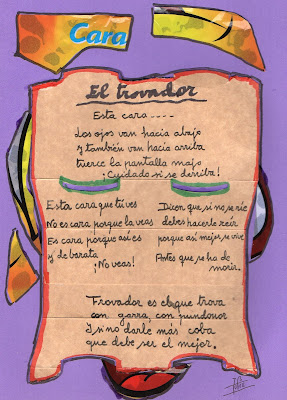 Cara
El trovador
Esta cara....
Los ojos van hacia abajo
y también van hacia arriba
tuerce la pantalla majo
¡Cuidado si se derriba!
Esta cara que tú ves
No es cara porque la veas
Es cara porque así es
y de barata
¡No veas!
Dicen que si no se ríe
debes hacerle reír
porque así mejor se vive
Antes que se ha de
morir.
Trovador es el que trova
con garra, con pundonor
Y si no darle más coba
que debe ser el mejor.